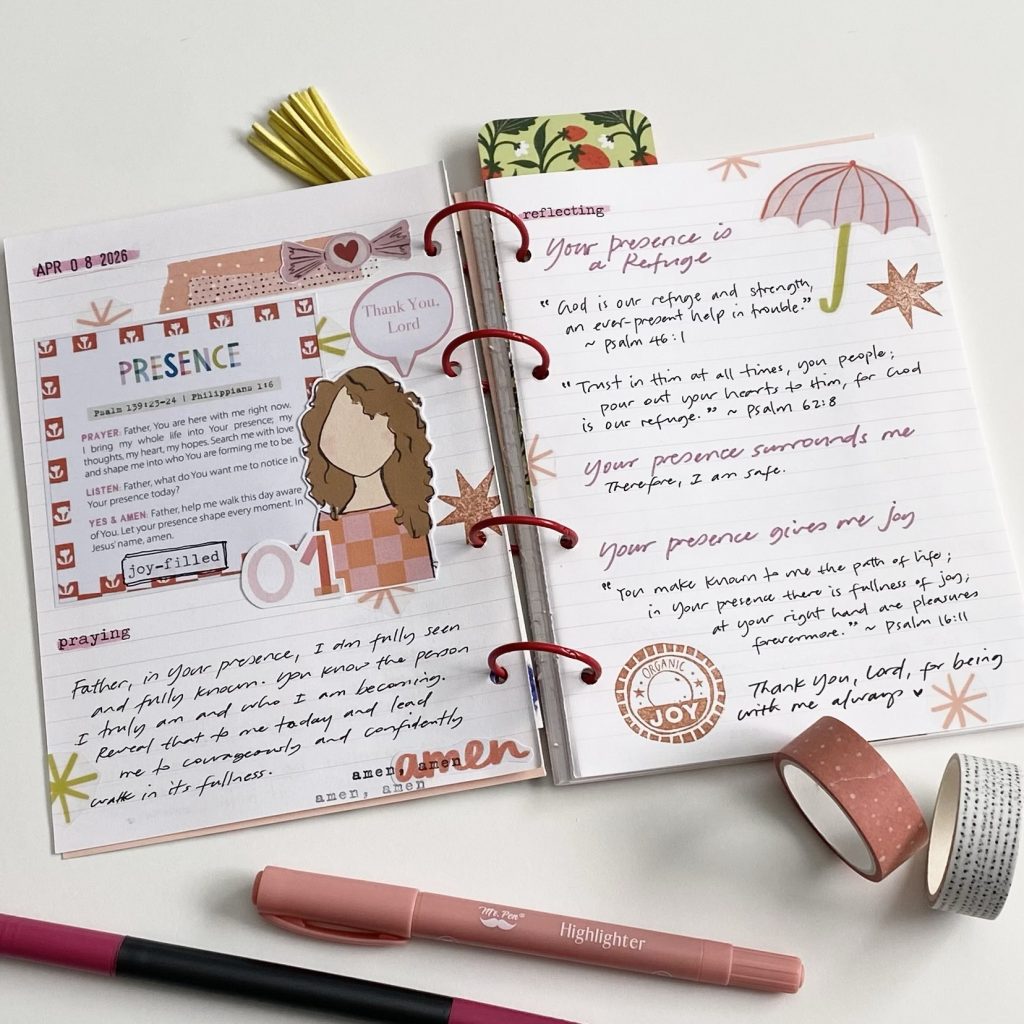 APR 08 2026
Thank You,
Lord
PRESENCE
Psalm 139:23-24 | Philippians 1:6
PRAYER: Father, You are here with me right now.
I bring my whole life into Your presence; my
thoughts, my heart, my hopes. Search me with love
and shape me into who You are forming me to be.
LISTEN: Father, what do You want me to notice in
Your presence today?
YES & AMEN: Father, help me walk this day aware
of You. Let your presence shape every moment. In
Jesus' name, amen.
joy-filled
01
praying
Father, in Your presence, I am fully seen
and fully known. You know the person
I truly am and who I am becoming.
Reveal that to me today and lead
me to courageously and confidently
walk in its fullness.
amen, amen
amen
amen, amen
reflecting
Your presence is
a Refuge
"God is our refuge and strength,
an ever-present help in trouble."
~ Psalm 46:1
"Trust in Him at all times, you people;
pour out your hearts to Him, for God
is our refuge." ~ Psalm 62:8
Your presence surrounds me
Therefore, I am safe.
Your presence gives me joy
"You make known to me the path of life;
in Your presence there is fullness of joy;
at your right hand are pleasures
forevermore." ~ Psalm 16:11
ORGANIC
JOY
Thank You, Lord, for being
with me always ♥
Mr. Pen®
Highlighter